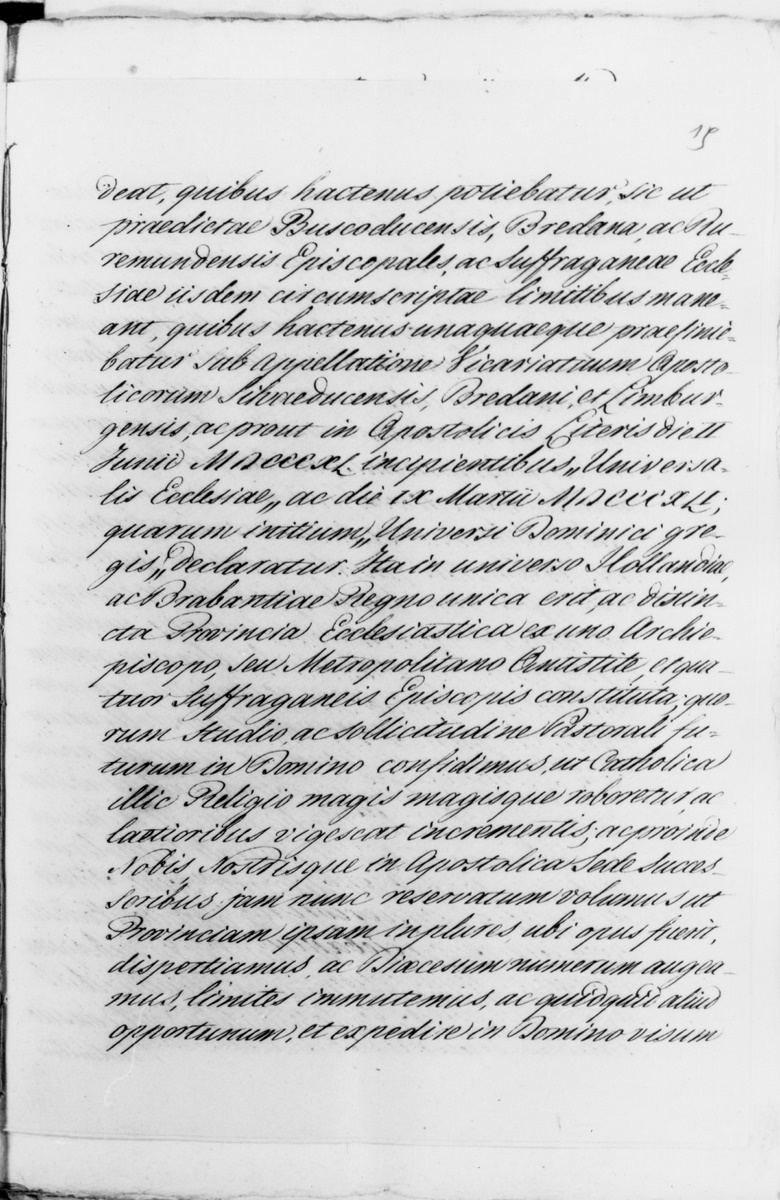 15
deat, quibus hactenus potiebatur, sic ut
praedictae Buscoducensis, Bredana, ac Ru-
remundensis Episcopales, ac Suffraganeae Eccle-
siae iisdem circumscriptae limitibus mane-
ant, quibus hactenus unaquaeque praefinie-
batur sub appellatione Vicariatuum Aposto-
licorum Silvaeducensis, Bredani, et Limbur-
gensis, ac prout in Apostolicis Literis die II
Junii MDCCCXL incipientibus „Universa-
lis Ecclesiae„ ac die IX Martii MDCCCXLI;
quarum initium „Universi Dominici gre-
gis„ declaratur. Ita in universo Hollandiae,
ac Brabantiae Regno unica erit, ac distin-
cta Provincia Ecclesiastica ex uno Archie-
piscopo, seu Metropolitano Antistite, et qua-
tuor Suffraganeis Episcopis constituta; quo-
rum studio ac sollicitudine Pastorali fu-
turum in Domino confidimus, ut Catholica
illic Religio magis magisque roboretur, ac
laetioribus vigescat incrementis; ac proinde
Nobis Nostrisque in Apostolica Sede succes-
soribus jam nunc reservatum volumus ut
Provinciam ipsam in plures, ubi opus fuerit,
dispertiamus, ac Dioecesum numerum augea-
mus, limites immutemus, ac quidquid aliud
opportunum, et expedire in Domino visum